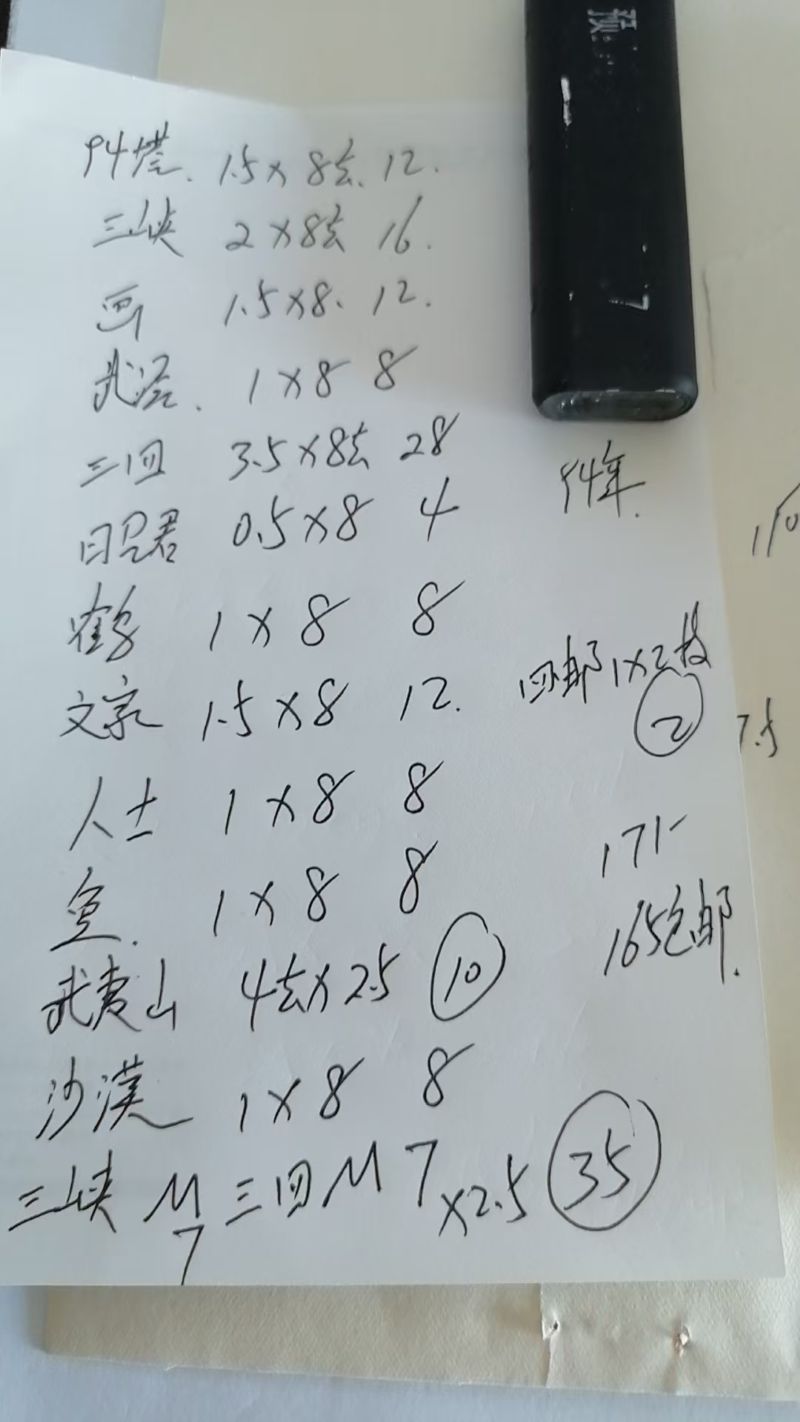 94塔. 1.5×8套. 12.
三峡 2×8套 16.
画 1.5×8. 12.
武塔. 1×8 8
三回 3.5×8套 28
昭君 0.5×8 4
鹤 1×8 8
文家 1.5×8 12.
人士 1×8 8
鱼. 1×8 8
武夷山 4套×2.5 10
沙漠 1×8 8
三峡M 三回M 7×2.5 35
7
94年.
回邮 1×2枚
2
171-
165包邮.
7.5
预